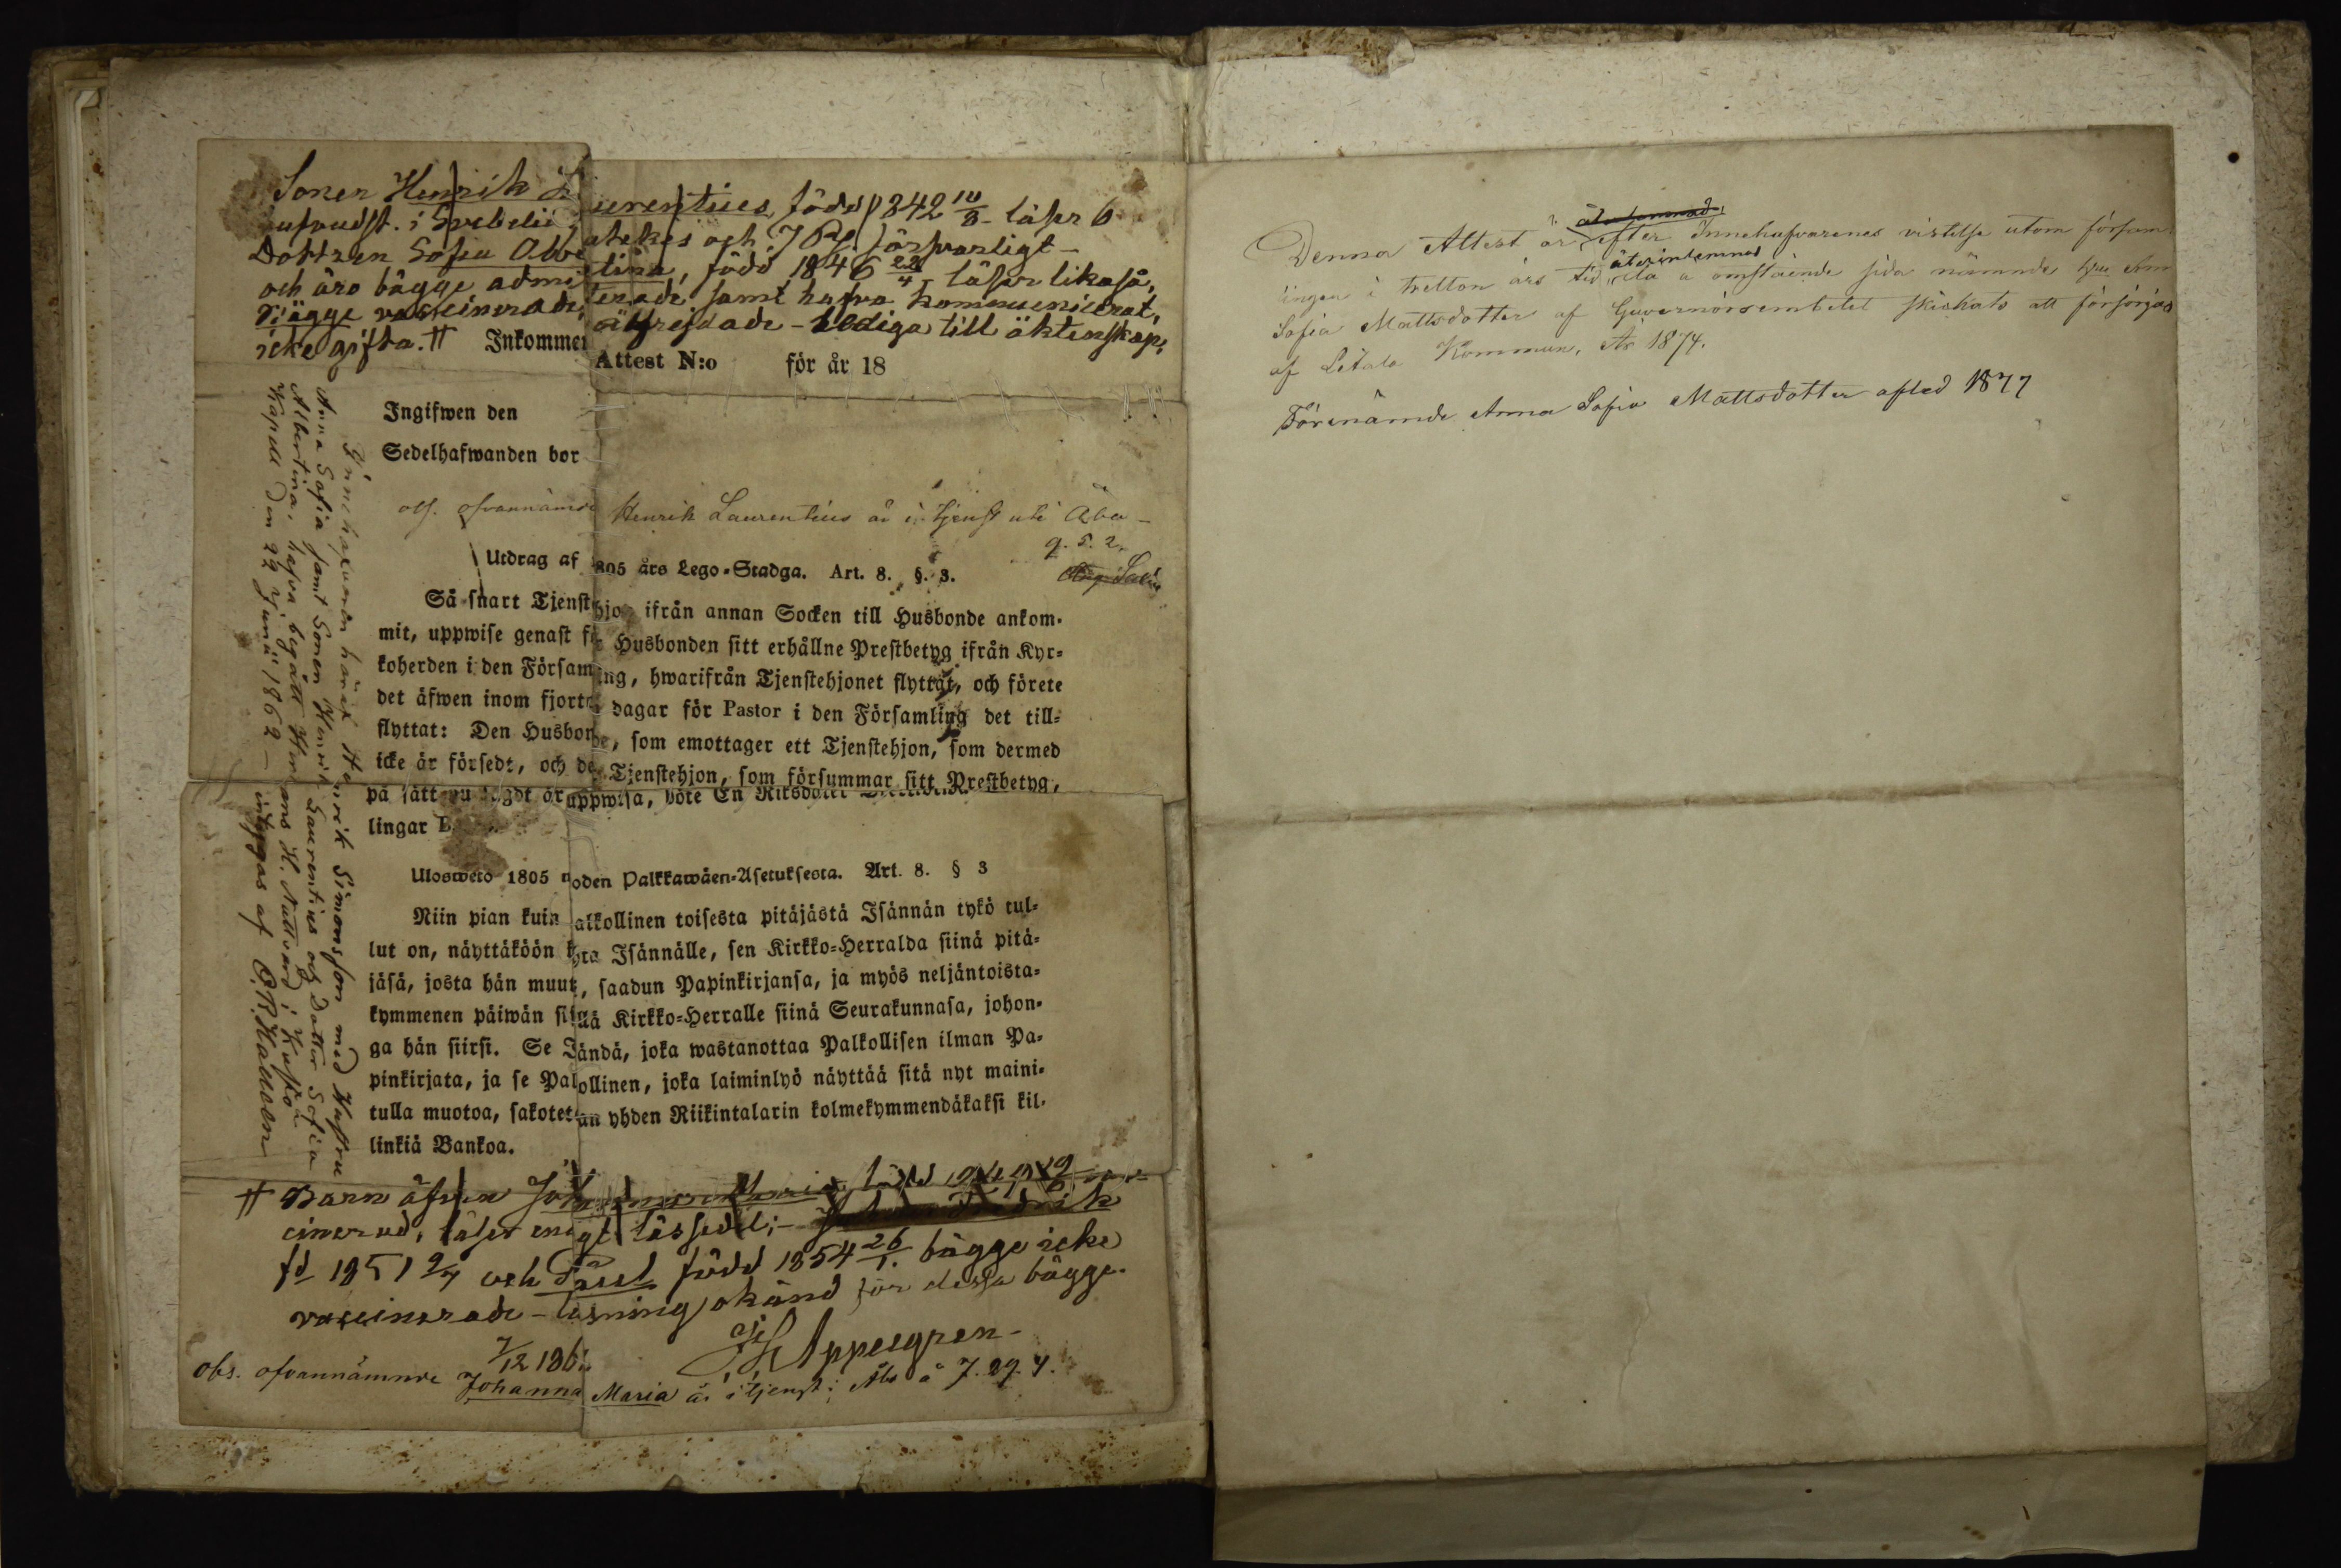 Sonen Henrik Laurentius, född 1842 10/8 läser 6
hufvudst. i Svebelii
atekes och försvarligt –
Dottren Sofia Albertina, född 1846 22/4 läser likaså,
och äro bägge admitterade samt hafva kommunicerat,
Bägge vaccinerade, välfrejdade – Lediga till äktenskap,
icke gifta. # Inkommen
Attest N:o för år 18
Ingifwen den
Sedelhafwanden bor
ofvannämnde Henrik Laurentius är i tjenst uti Åbo –
Utdrag af 1805 års Lego-Stadga. Art. 8. §. 3.
Så snart Tjenstehjon ifrån annan Socken till Husbonde ankom-
mit, uppwise genast för Husbonden sitt erhållne Prestbetyg ifrån Kyr-
koherden i den Församling, hwarifrån Tjenstehjonet flyttat, och förete
det äfwen inom fjorton dagar för Pastor i den Församling det till-
flyttat: Den Husbonde, som emottager ett Tjenstehjon, som dermed
icke är försedt, och det Tjenstehjon, som försummar sitt Prestbetyg,
på sätt nu sagdt är uppwisa, böte En Riksdaler
lingar B
Ulosweto 1805 wuoden Palkkawäen-Asetuksesta. Art. 8. § 3
Niin pian kuin palkollinen toisesta pitäjästä Isännän tykö tul-
lut on, näyttäköön kohta Isännälle, sen Kirkko-Herralda siinä pitä-
jäsä, josta hän muutti, saadun Papinkirjansa, ja myös neljäntoista-
kymmenen päiwän sisällä Kirkko-Herralle siinä Seurakunnasa, johon-
ga hän siirsi. Se Isändä, joka wastanottaa Palkollisen ilman Pa-
pinkirjata, ja se Palkollinen, joka laiminlyö näyttää sitä nyt maini-
tulla muotoa, sakotetaan yhden Riikintalarin kolmekymmendäkaksi kil-
linkiä Bankoa.
# Barn äfven Johanna Maria född
cinerad, läser enligt lässedel; –
fd 1851 9/7 och Paul född 1854 26/1. bägge icke
vaccinerade – läsning okänd för dessa bägge.
7/12 186 Appelgren –
Obs. ofvannämnde Johanna Maria är i tjenst i Åbo å 7. 29. 4.
Innehafvaren häraf Henrik Simonsson med Hustru
Anna Sofia samt Sonen Henrik Laurentius och Dotter Sofia
Albertina, hafva begått Herrans H. Nattvard i Kuskö
Kapell den 29 Junii 1862 – intygas af
Denna Attest är efter Innehafvarenes vistelse utom försam
lingen i tretton års tid återinlemnad å omstående sida nämnde hru Ann
Sofia Mattsdotter af Guvernörsembetet skickats att försörjas
af Letala Kommun. År 1874.
Förenämde Anna Sofia Mattsdotter afled 1877